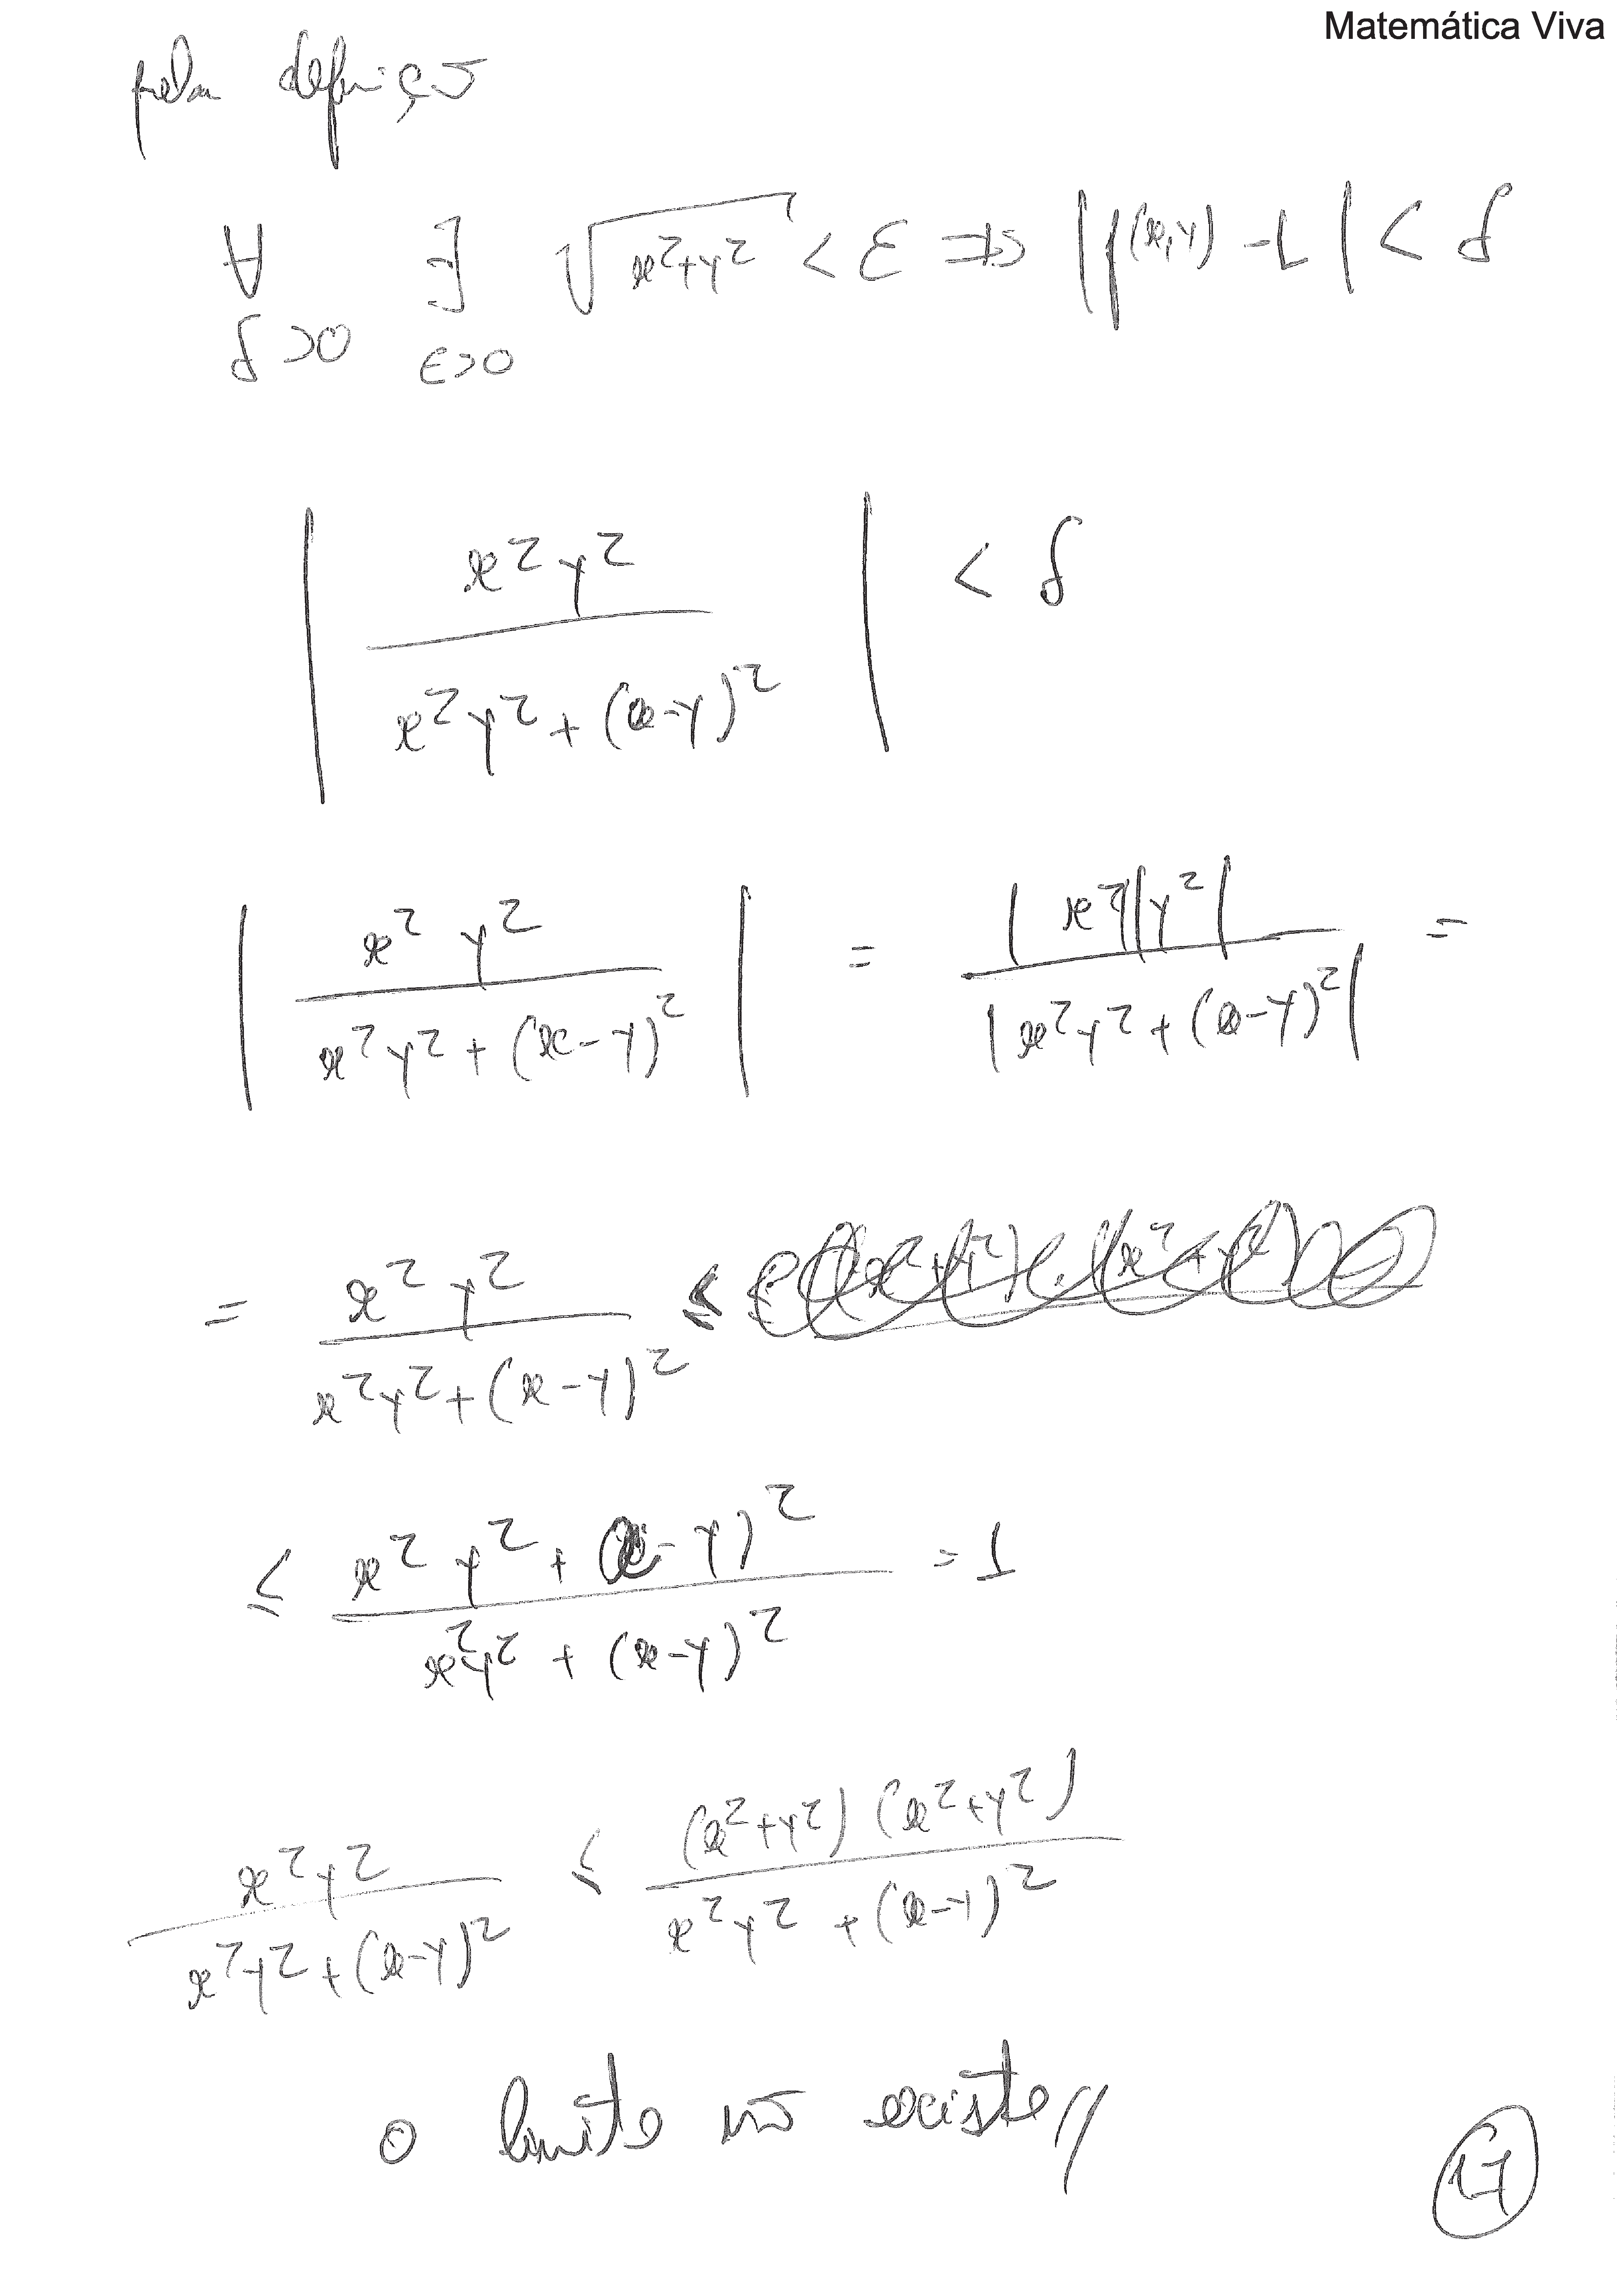 Matemática Viva
pela definição
∀ ∃ √(x²+y²) < ε ⇒ |f(x,y) - L| < δ
δ>0 ε>0
| x² y² / (x² y² + (x-y)²) | < δ
| x² y² / (x² y² + (x-y)²) | = |x²||y²| / |x² y² + (x-y)²| =
= x² y² / (x² y² + (x-y)²) ≤
≤ (x² y² + (x-y)²) / (x² y² + (x-y)²) = 1
x² y² / (x² y² + (x-y)²) ≤ (x²+y²) (x²+y²) / (x² y² + (x-y)²)
o limite não existe//
17